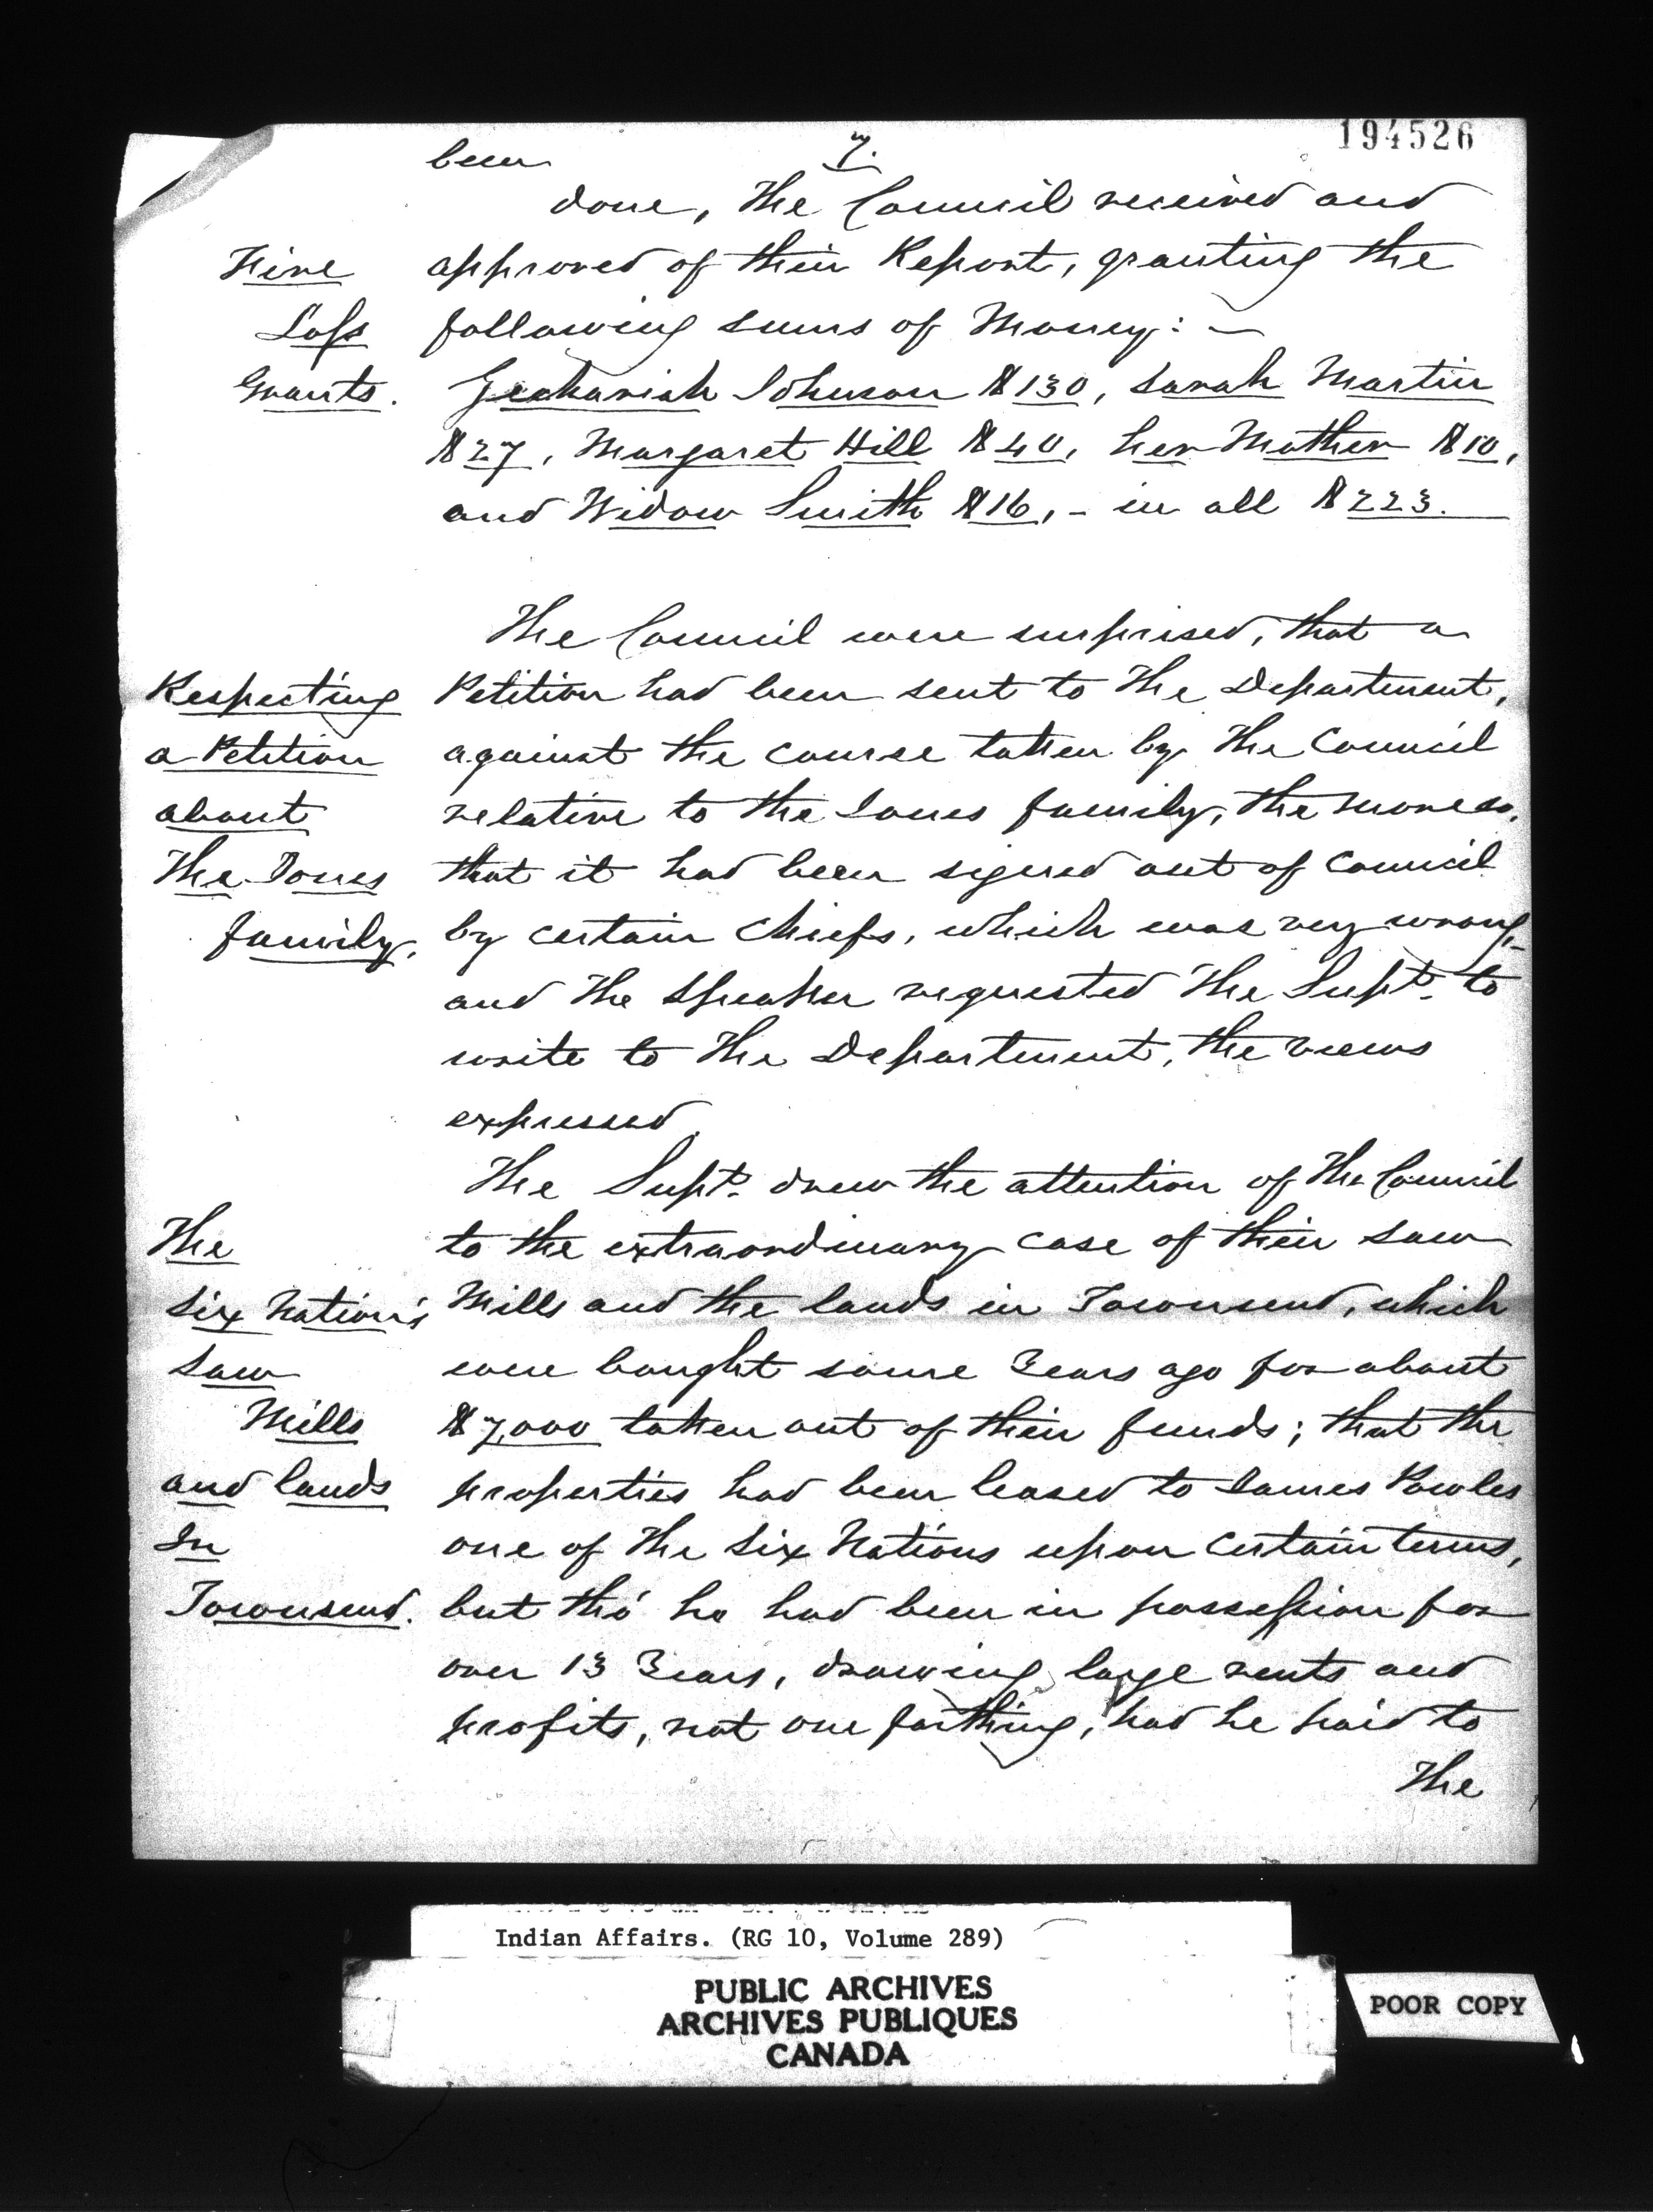 194526
7.
been
done, The Council received and
Fire
approved of their Report, granting the
Loss
following sums of Money: —
Grants.
Zechariah Johnson $130, Sarah Martin
$27, Margaret Hill $40, her Mother $10,
and Widow Smith $16, - in all $223.
The Council were surprised, that a
Respecting
Petition had been sent to The Department,
a Petition
against the course taken by The Council
about
relative to the Jones family, the more so,
The Jones
that it had been signed out of Council
family.
by certain Chiefs, which was very wrong,-
and The Speaker requested The Supt. to
write to The Department, the views
expressed.
The Supt. drew the attention of The Council
The
to the extraordinary case of their Saw
Six Nation's
Mills and the lands in Townsend, which
Saw
were bought some Years ago for about
Mills
$7,000 taken out of their funds; that the
and lands
properties had been leased to James Powles
In
one of The Six Nations upon certain terms,
Townsend.
but tho' he had been in possession for
over 13 Years, drawing large rents and
profits, not one farthing, had he paid to
The
Indian Affairs. (RG 10, Volume 289)
PUBLIC ARCHIVES
ARCHIVES PUBLIQUES
CANADA
POOR COPY